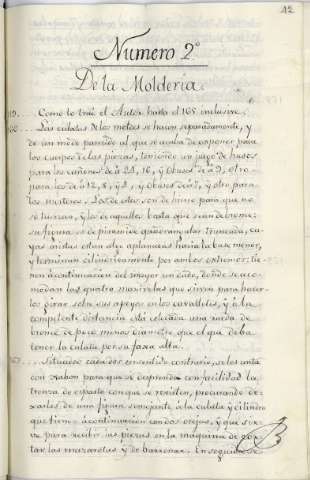 12
Numero 2º
De la Molderia
Como lo trae el Autor hasta el 165 inclusive.
Las culatas de los moldes se hacen separadamente, y
de un modo parecido al que se acaba de exponer para
los cuerpos de las piezas, teniendo un juego de husos
para los cañones de á 24, 16, y obuses de á 9, otro
para los de á 12, 8, y 4, y obuses de á 7, y otro para
los morteros. Los de estos son de hierro para que no
se tuerzan, y los de aquellos basta que sean de bronce:
su figura es de piramide quadrangular truncada, cu-
yas aristas estan algo aplanadas hacia la base menor,
y terminan cilindricamente por ambos extremos: tie-
nen á continuacion del mayor un dado, donde se aco-
modan las quatro manivelas que sirven para hacer-
los girar sobre sus apoyos en los cavalletes, y á la
competente distancia está colocada una rueda de
bronce de poco menos diametro que el que deba
tener la culata por su faxa alta.
Situados cada dos en sentido contrario, se les unta
con xabon para que se desprenda con facilidad la
trenza de esparto con que se revisten, procurando de-
xarles de una figura semejante á la culata y cilindro
que tiene á continuacion con dos orejas, y que sir-
ve para recibir las piezas en la maquina de cor-
tar las mazarotas y de barrenar. En seguida se